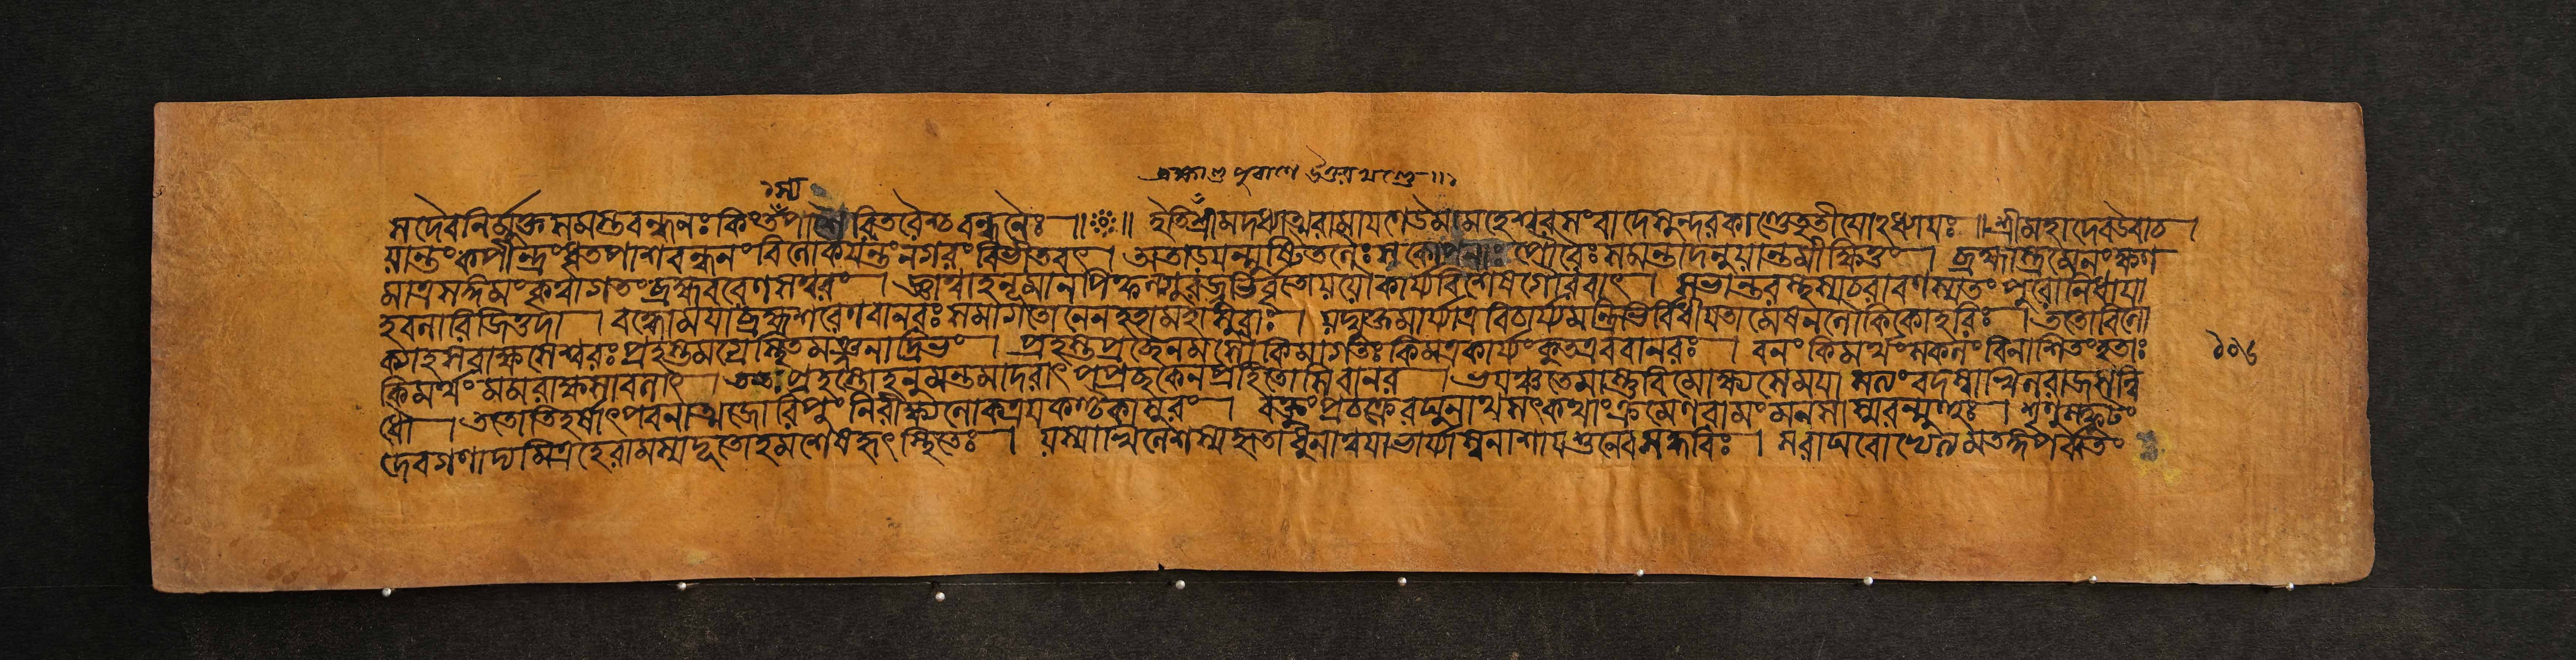 ব্রহ্মাণ্ডপুরাণে উত্তরখণ্ডে ॥
স্য
সদৈবনির্ম্মুক্তসমস্তবন্ধনঃ কিং তস্যপাশৈরিতরৈশ্চবন্ধনৈঃ ॥ ॥ ইতিশ্রীমদধ্যাত্মরামায়ণেউমামহেশ্বরসংবাদেসুন্দরকাণ্ডেতৃতীয়োঽধ্যায়ঃ ॥ শ্রীমহাদেবউবাচ ।
যান্তংকপীন্দ্রংধৃতপাশবন্ধনং বিলোকয়ন্তংনগরংবিভীতবৎ । অতাড়য়ন্মুষ্টিতলৈঃসুকোপনাঃ পৌরাঃসমন্তাদনুয়ান্তমীক্ষিতুং । ব্রহ্মাস্ত্রমেনংক্ষণ
মাত্রসঙ্গমংকৃত্বাগতংব্রহ্মবরেণসত্বরং । জ্ঞাত্বাহনূমানপিফল্গুরজ্জুভির্ধৃতোযয়ৌকার্য্যবিশেষগৌরবাৎ । সভান্তরস্থস্যচরাবণস্যতং পুরোনিধায়া
হবলারিজিত্তদা । বদ্ধোময়াব্রহ্মশরেণবানরঃ সমাগতোনেনহতামহাসুরাঃ । যদ্যুক্তমার্য্যাত্রবিচার্য্যমন্ত্রিভির্বিধীয়তামেষনলৌকিকোহরিঃ । ততোবিলো
ক্যাহসরাক্ষসেশ্বরঃপ্রহস্তমগ্রেস্থিতমঞ্জনাদ্রিভং । প্রহস্তপ্রচ্ছৈনমসৌকিমাগতঃকিমত্রকার্য্যংকুতএববানরঃ । বনংকিমর্থংসকলংবিনাশিতংহতাঃ
কিমর্থংমমরাক্ষসাবলাৎ । ততঃপ্রহস্তোহনুমন্তমাদরাৎ পপ্রচ্ছকেনপ্রহিতোসিবানর । ভয়ঞ্চতেমাস্তুবিমোক্ষ্যসেময়া সত্যংবদস্বাখিলরাজসন্নি
ধৌ । ততোতিহর্ষাৎপবনাত্মজোরিপুং নিরীক্ষ্যলোকত্রয়কণ্টকাসুরং । বক্তুংপ্রচক্রেরঘুনাথসৎকথাংক্রমেণরামংমনসাস্মরন্মুহুঃ । শৃণুস্ফুটং
দেবগণাদ্যমিত্রহেরামস্যদূতোহমশেষহৃৎস্থিতেঃ । যস্যাখিলেশস্যহৃতাধুনাত্বয়াভার্য্যাস্বনাশায়শুনেবসদ্ধবিঃ । সরাঘবোভ্যেত্যমতঙ্গপর্বতং